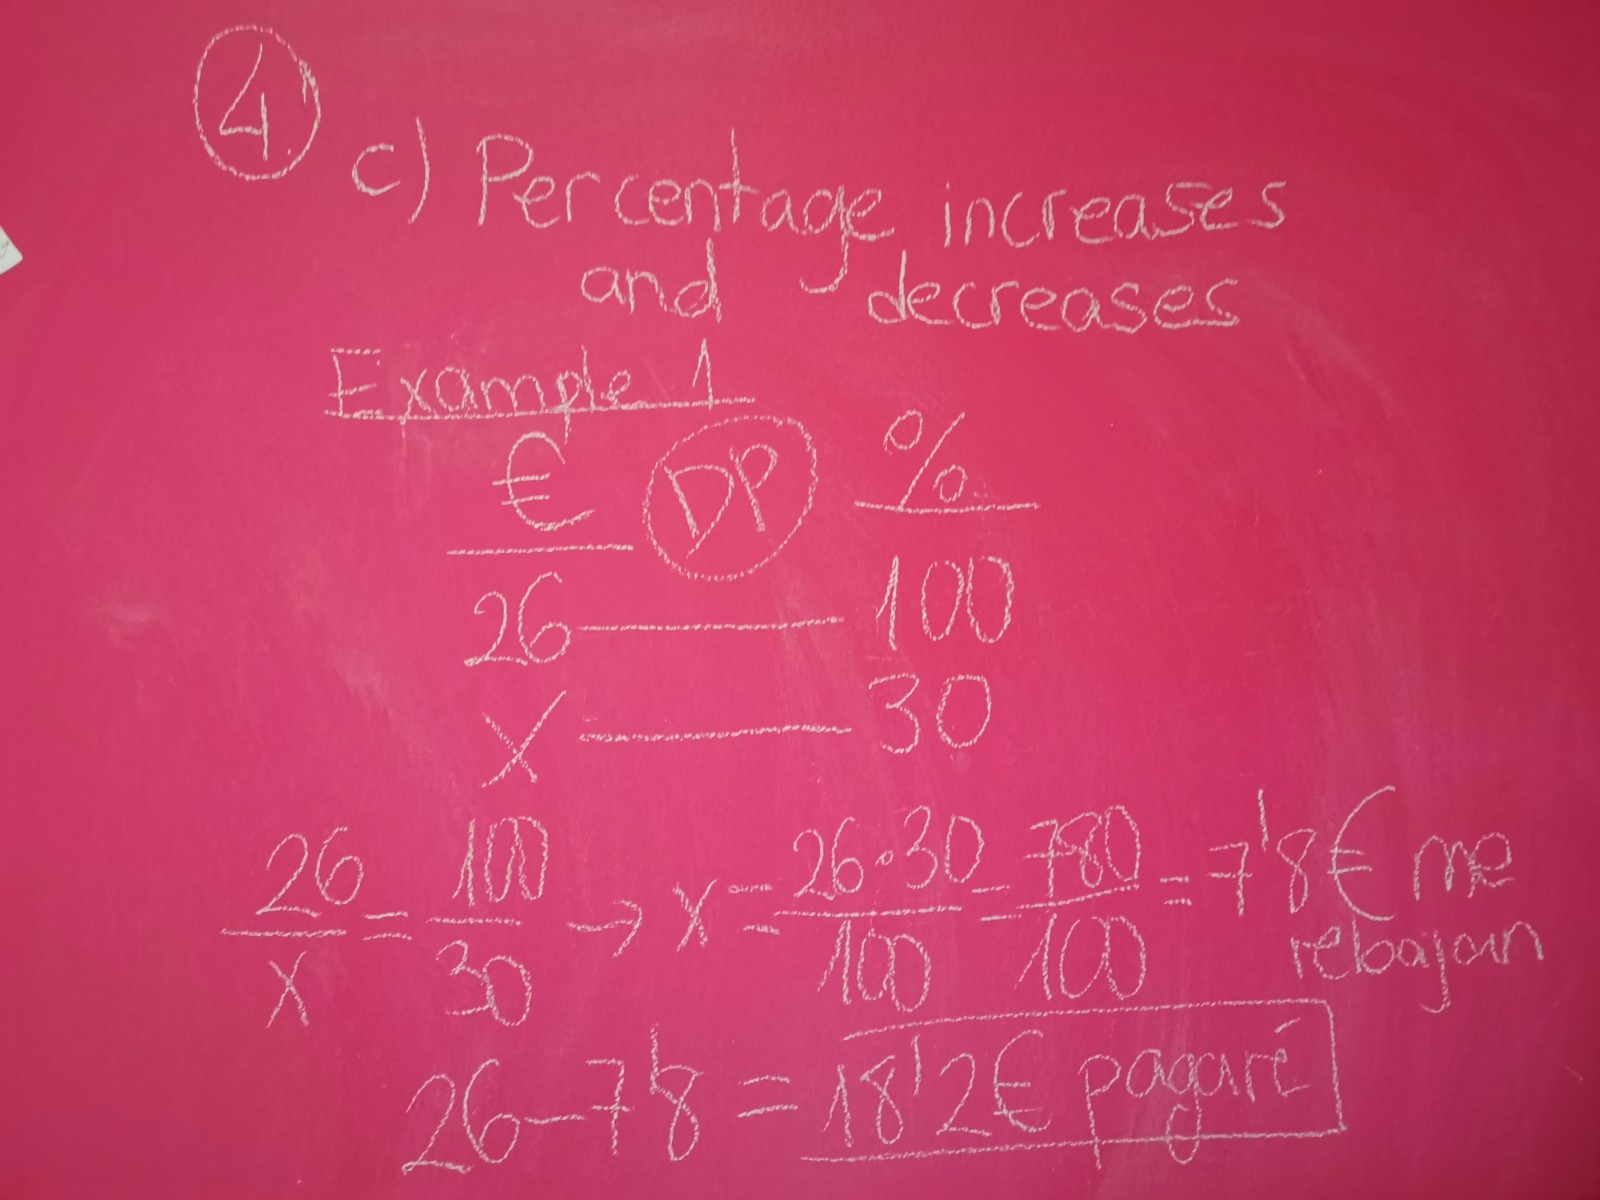 4
c) Percentage increases
and decreases
Example 1
€ DP %
26 — 100
x — 30
26/x = 100/30 → x = 26·30/100 = 780/100 = 7'8€ me
rebajan
26 - 7'8 = 18'2€ pagaré